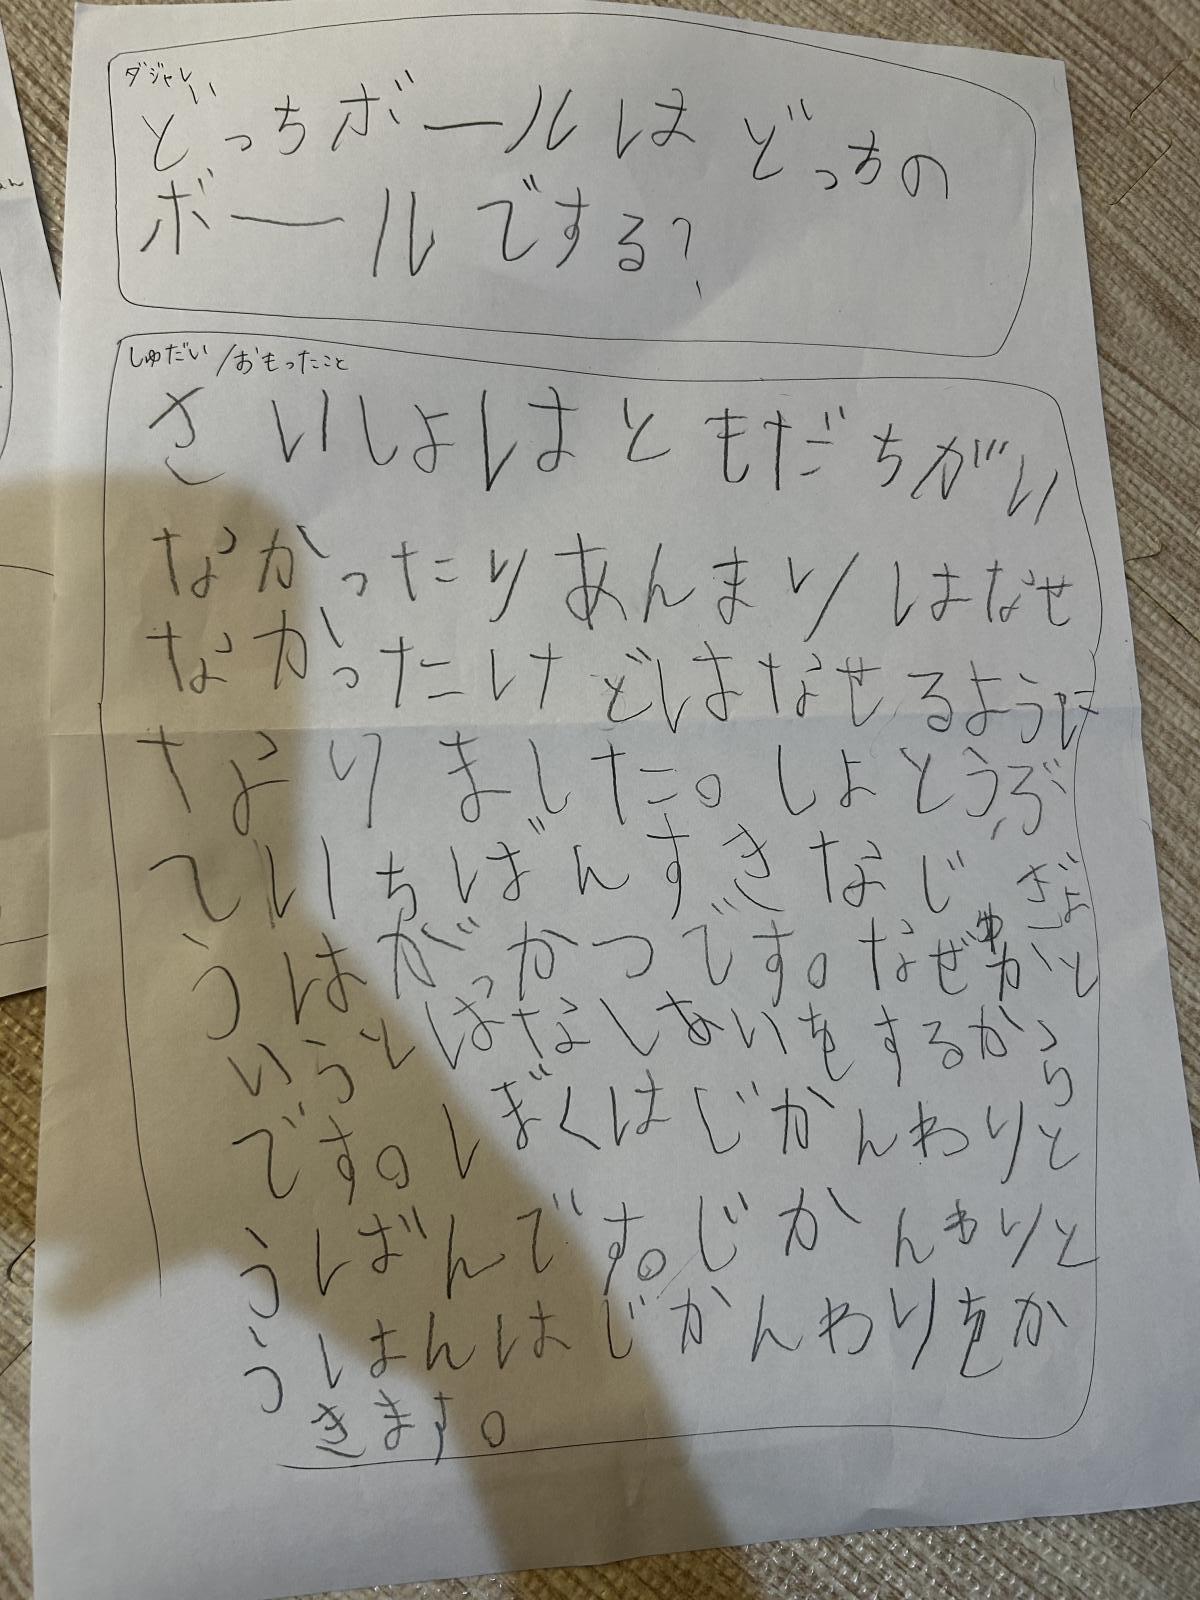 ダジャレ
どっちボールは どっちの
ボールでする?
しゅだい/おもったこと
さいしょはともだちがい
なかったりあんまりはなせ
なかったけどはなせるように
なりました。しょとうぶ
でいちばんすきなじぎょ
うはがっかつです。なぜかと
ゆうとはなしあいをするから
です。ぼくはじかんわりと
うばんです。じかんわりと
うばんはじかんわりをか
きます。